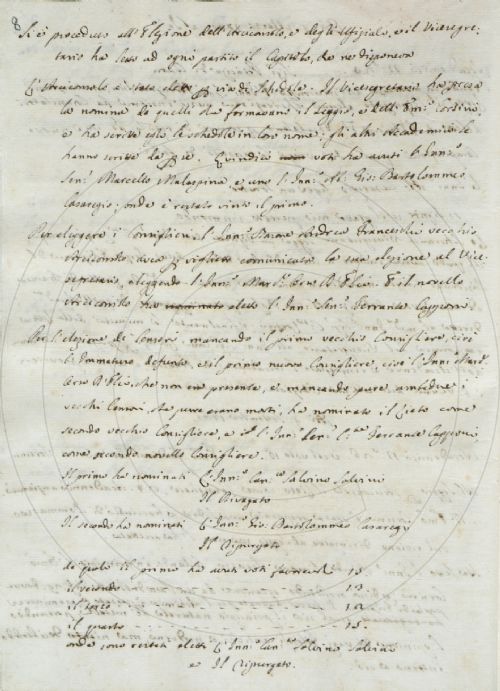 8
Si è proceduto all'Elezione dell'Arciconsolo, e degli Uffiziali, e il Vicesegre-
tario ha letto ad ogni partito il Capitolo, che ne disponeva
L'Arciconsolo è stato eletto per via di schedule. Il Vicesegretario ha
la nomina da quelli che formavano il seggio, e dell' Corsino,
e ha scritte esso le schedule in loro nome: gli altri Accademici se
hanno scritte da se. Quindici voti ha avuti l'Innº
Senʳ Marcello Malaspina e uno l'Innº Ab. Gio: Bartolommeo
Casaregio; onde è restato vinto il primo.
Per eleggere i Consiglieri, l'Innº Barone Andrea Franceschi vecchio
Arciconsolo avea per viglietto comunicata la sua elezione al Vice-
segretario, eleggendo l'Innº Marˢᵉ e il novello
Arciconsolo ha nominato eletto l'Innº Senʳ Ferrante Capponi
Per l'elezione de' Censori, mancando il primo vecchio Consigliere, cioè
l'Immaturo defunto, e il primo nuovo Consigliere, cioè l'Innº Marˢᵉ
che non era presente, e mancando pure amendue i
vecchi Censori, che pure erano morti, ha nominato il come
secondo vecchio Consigliere, e l'Innº Senʳ Ferrante Capponi,
come secondo novello Consigliere.
Il primo ha nominati L'Innº Canᶜᵒ Salvino Salvini
Il Rivagato
Il secondo ha nominati L'Innº Gio: Bartolommeo Casaregi
Il Ripurgato
de' quali il primo ha avuti voti favorevoli 15
il secondo 13
il terzo 12
il quarto 15.
onde sono restati eletti L'Innº Canᶜᵒ Salvino Salvini
e Il Ripurgato.